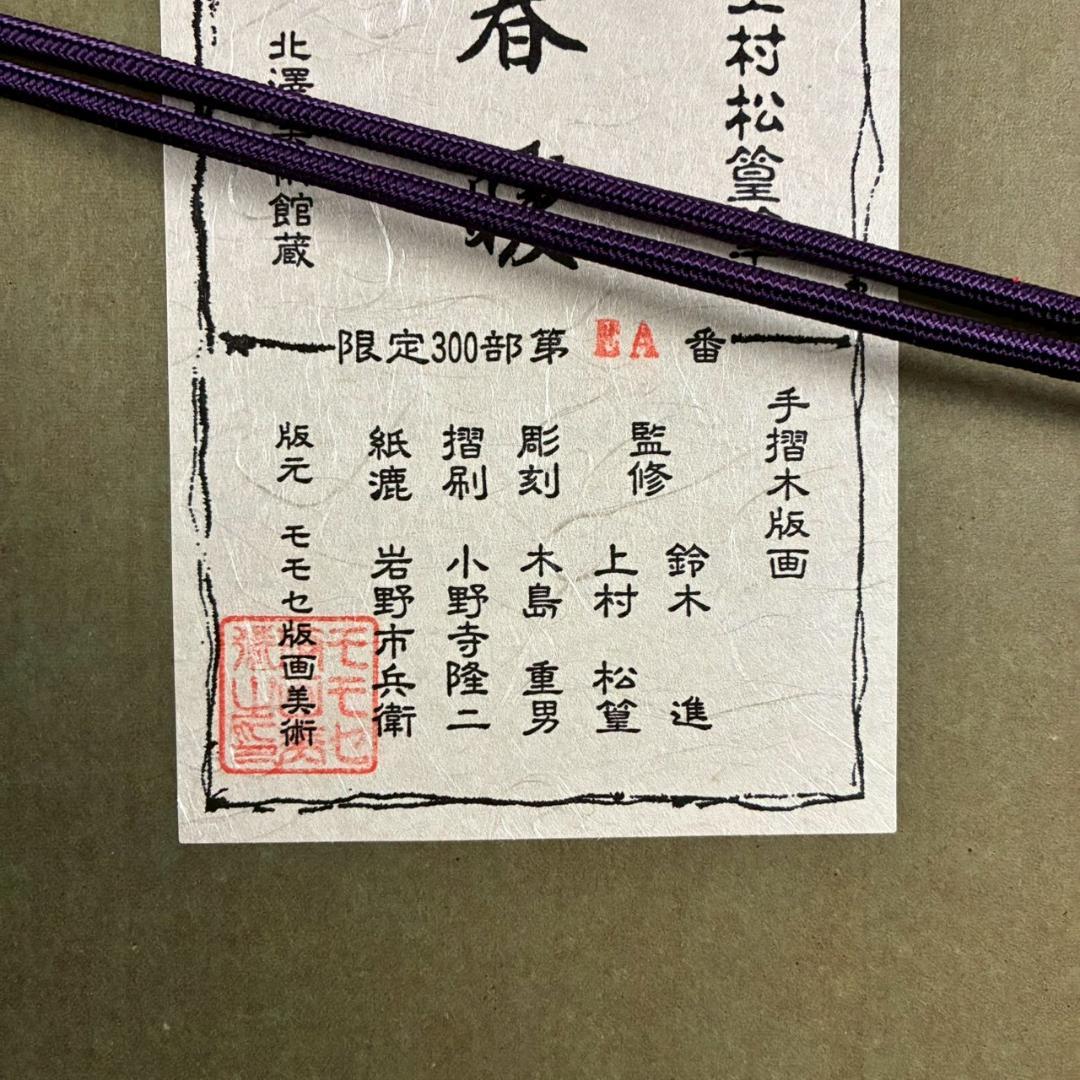 上村松篁
春
北澤
館蔵
限定300部第 EA 番
手摺木版画
監修 鈴木 進
上村 松篁
彫刻 木島 重男
摺刷 小野寺隆二
紙漉 岩野市兵衛
版元 モモセ版画美術